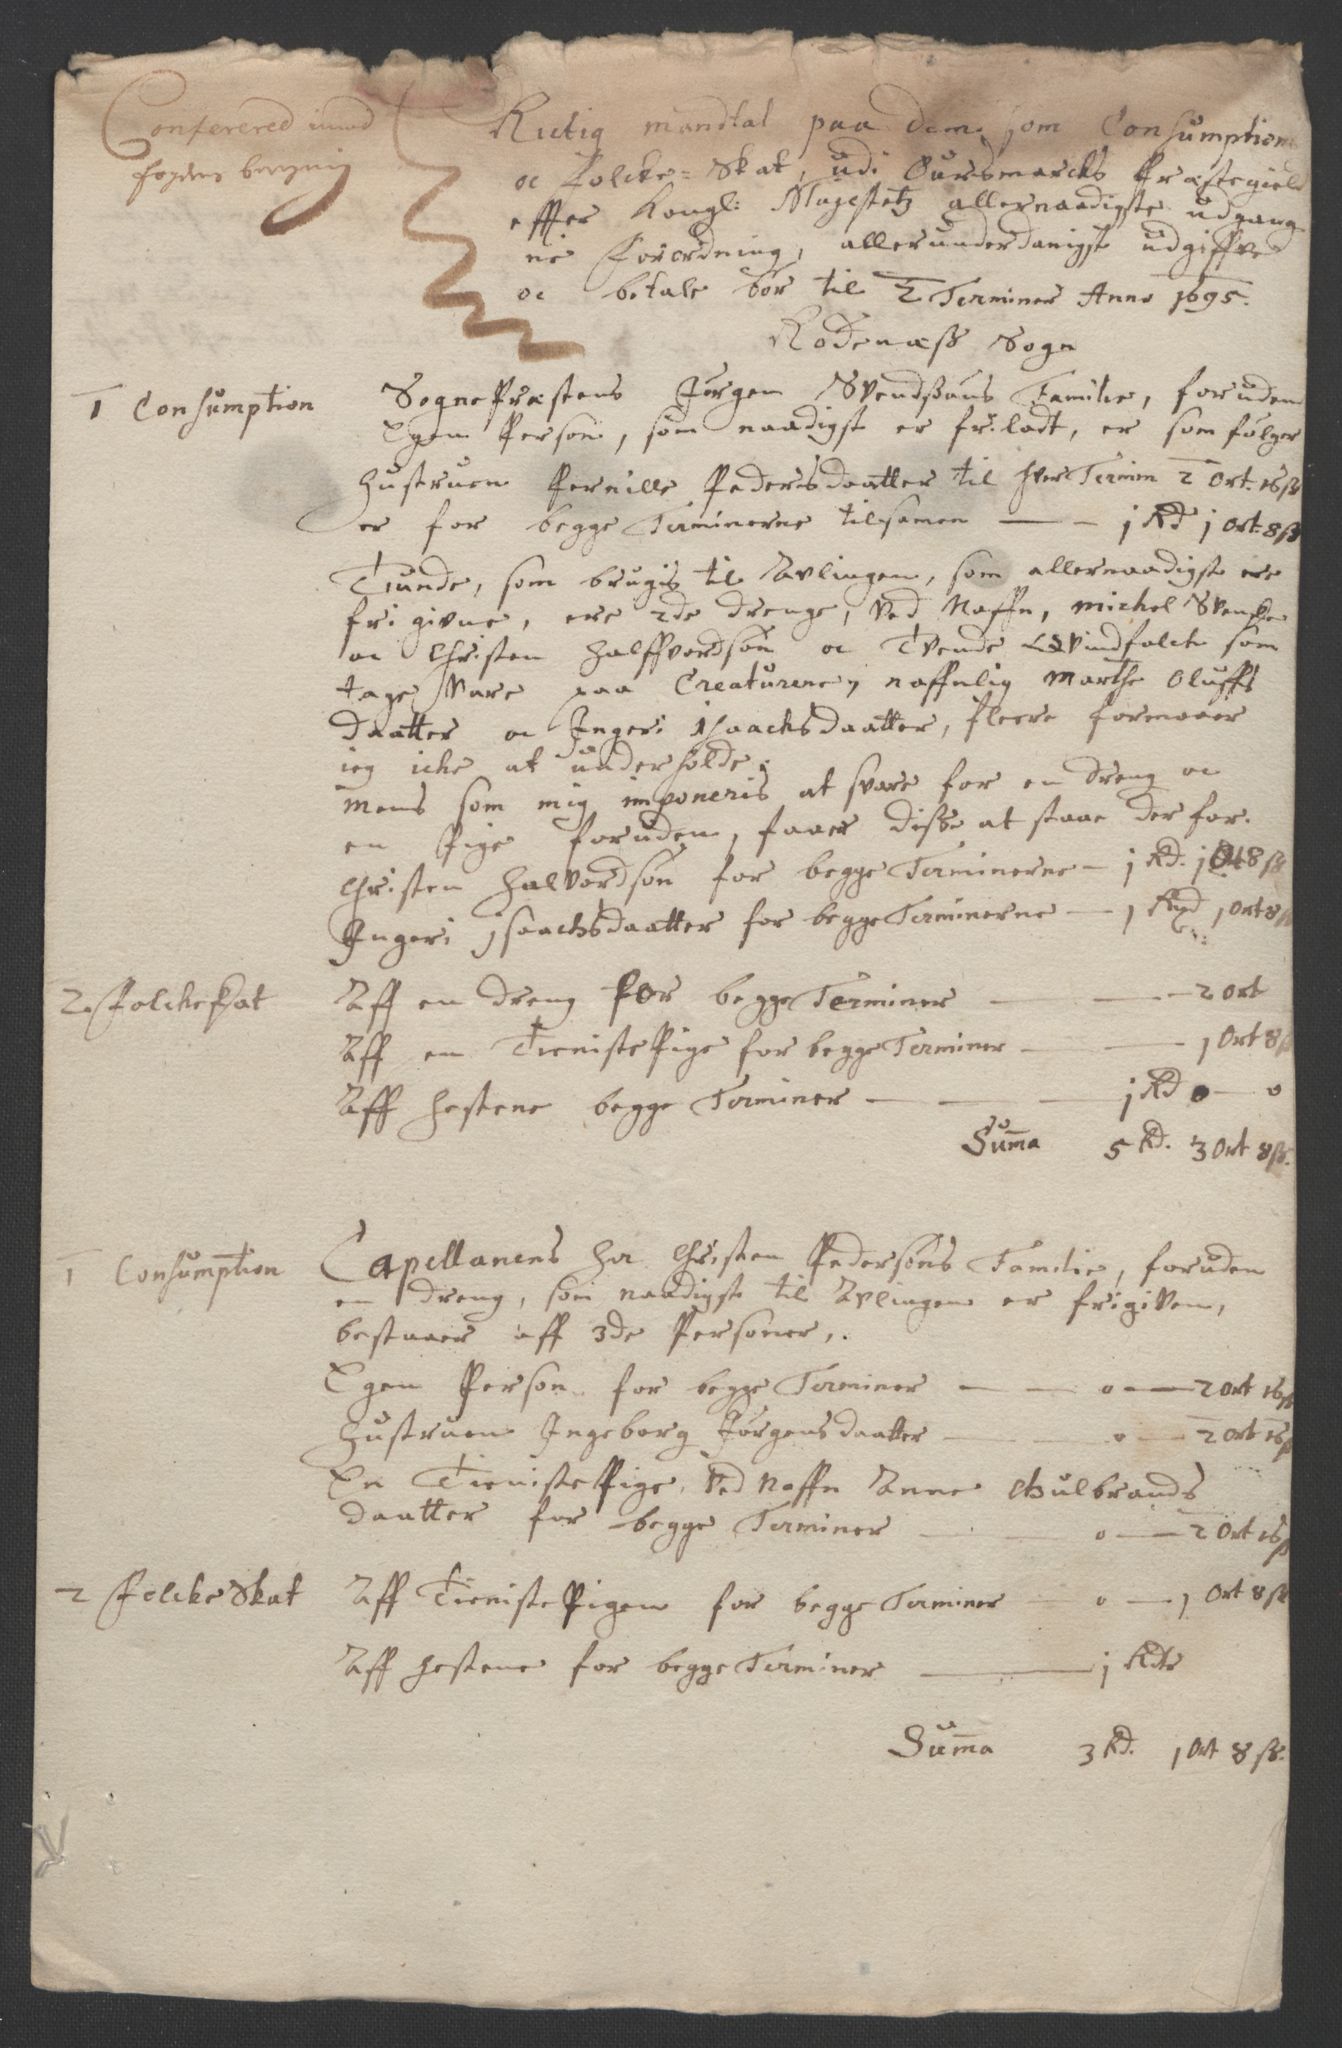 Conferered imod
fogdens
Rictig mandtal paa dem som Consumption
oc Folcke-Skat, udi Oursmarcks Præstegield
effter Kongl: Magestetz allernaadigste udgang
ne Forordning, allerunderdanigst udgiffve
oc betale bør til 2 Terminer Anno 1695.
Rødenæss Sogn
1 Consumption
SognePræstens Jørgen Svendssøns Familie, foruden
Egen Person, som naadigst er friladt, er som følger
Hustruen Pernille Pedersdaatter til hver Termin 2 Ort. 16 ß
er for begge Terminerne tilsamen — 1 Rd 1 Ort 8 ß
Tiunde, som brugis til Avlingen, som allernaadigst ere
frigivne, ere 2de drenge, ved Naffn, Michel Svenske
oc Christen Halffvordsøn oc Tvende Qvindfolck som
tage Vare paa Creaturene, naffnlig Marthe Oluffs
daatter oc Ingeri Isaachsdaatter, fleere formaaer
ieg icke at underholde,
Mens som mig imponeris at svare for en dreng oc
en Pige foruden, faaer disse at staae der for.
Christen Halvordsøn for begge Terminerne — 1 Rd. 1 Ort 8 ß
Ingeri Isaachsdaatter for begge Terminerne — 1 Rd 1 Ort 8 ß
2. Folckeskat
Aff en dreng for begge Terminer — 2 Ort
Aff en TienistePige for begge Terminer — 1 Ort 8 ß
Aff Hestene begge Terminer — 1 Rd 0 — 0
Summa 5 Rd. 3 Ort 8 ß.
1 Consumption
Capellanens Her Christen Pedersøns Familie, foruden
en dreng, som naadigst til Avlingen er frigiven,
bestaaer aff 3de Personer,.
Egen Person for begge Terminer — 0 — 2 Ort 16 ß
Hustruen Ingeborg Jørgensdaatter — 0 — 2 Ort 16 ß
En TienistePige, Ved Naffn Anne Gulbrands
daatter for begge Terminer — 0 — 2 Ort 16 ß
2 FolckeSkat
Aff TienistePigen for begge Terminer — 0 — 1 Ort 8 ß
Aff Hestene for begge Terminer — 1 Rdr
Summa 3 Rd. 1 Ort 8 ß.